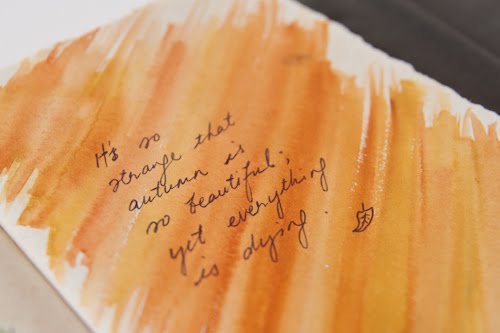 It's so
strange that
autumn is
so beautiful;
yet everything
is dying.